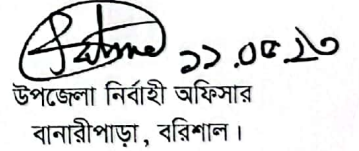 ২২.০৫.২৩
উপজেলা নির্বাহী অফিসার
বানারীপাড়া, বরিশাল।